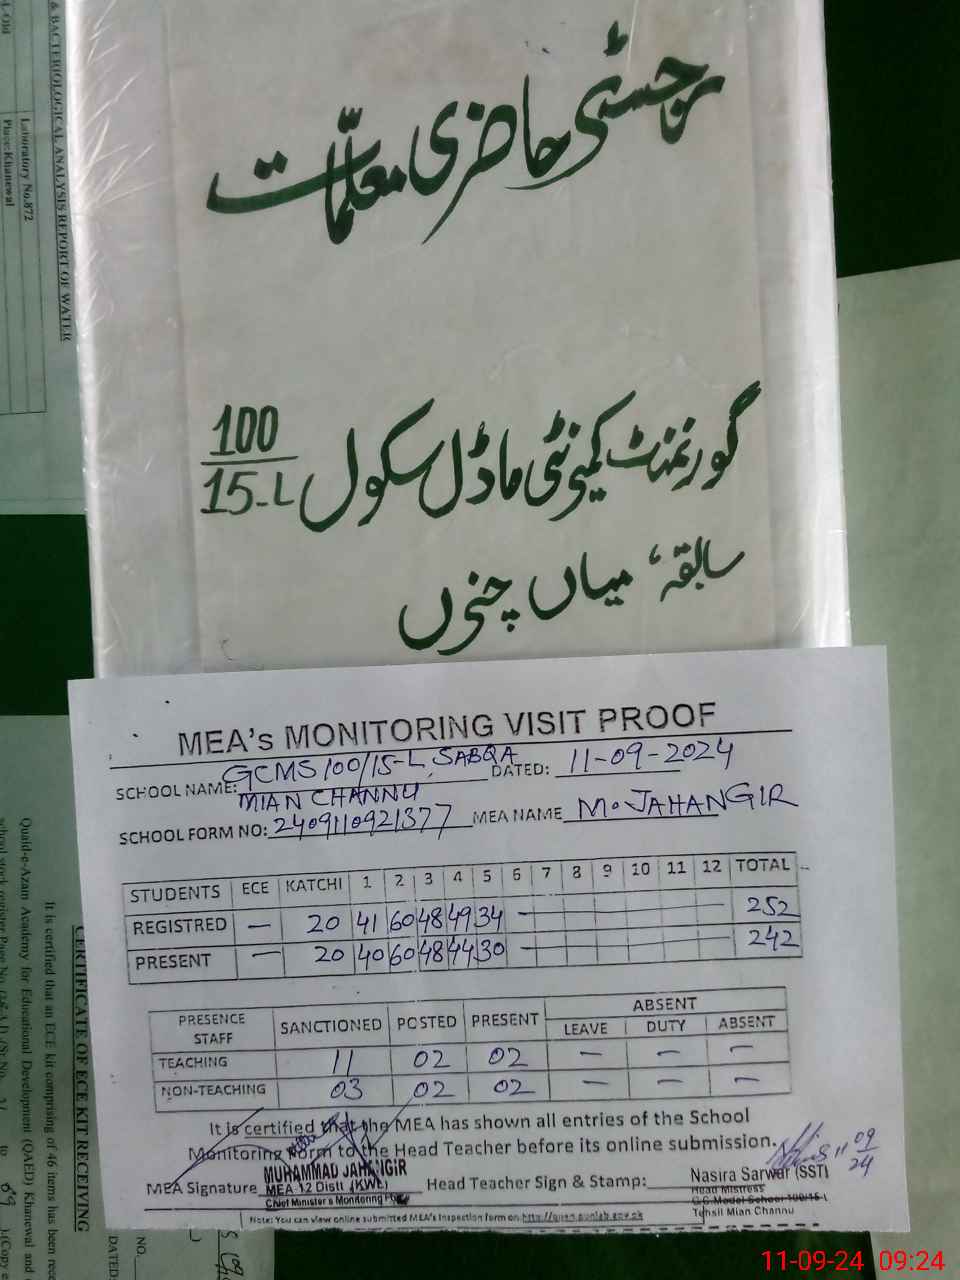 رجسٹر حاضری معلمات
گورنمنٹ کمیونٹی ماڈل سکول 100/15-L
سابقہ، میاں چنوں
MEA's MONITORING VISIT PROOF
SCHOOL NAME: GCMS 100/15-L, SABQA DATED: 11-09-2024
MIAN CHANNU
SCHOOL FORM NO: 2409110921377 MEA NAME M. JAHANGIR
STUDENTS ECE KATCHI 1 2 3 4 5 6 7 8 9 10 11 12 TOTAL
REGISTRED — 20 41 60 48 49 34 — 252
PRESENT — 20 40 60 48 44 30 — 242
PRESENCE STAFF SANCTIONED POSTED PRESENT ABSENT
LEAVE DUTY ABSENT
TEACHING 11 02 02 — — —
NON-TEACHING 03 02 02 — — —
It is certified that the MEA has shown all entries of the School
Monitoring Form to the Head Teacher before its online submission.
11 09/24
MUHAMMAD JAHANGIR
MEA Signature MEA-12 Distt (KWL) Head Teacher Sign & Stamp: Nasira Sarwar (SST)
Chief Minister's Monitoring Head Mistress
G.C Model School 100/15-L
Tehsil Mian Channu
Note: You can view online submitted MEA's Inspection form on
& BACTERIOLOGICAL ANALYSIS REPORT OF WATER
Laboratory No.872
Place: Khanewal
CERTIFICATE OF ECE KIT RECEIVING
It is certified that an ECE kit comprising of 46 items has been
Quaid-e-Azam Academy for Educational Development (QAED) Khanewal and
school stock register Page No.
NO.
DATED:
11-09-24 09:24